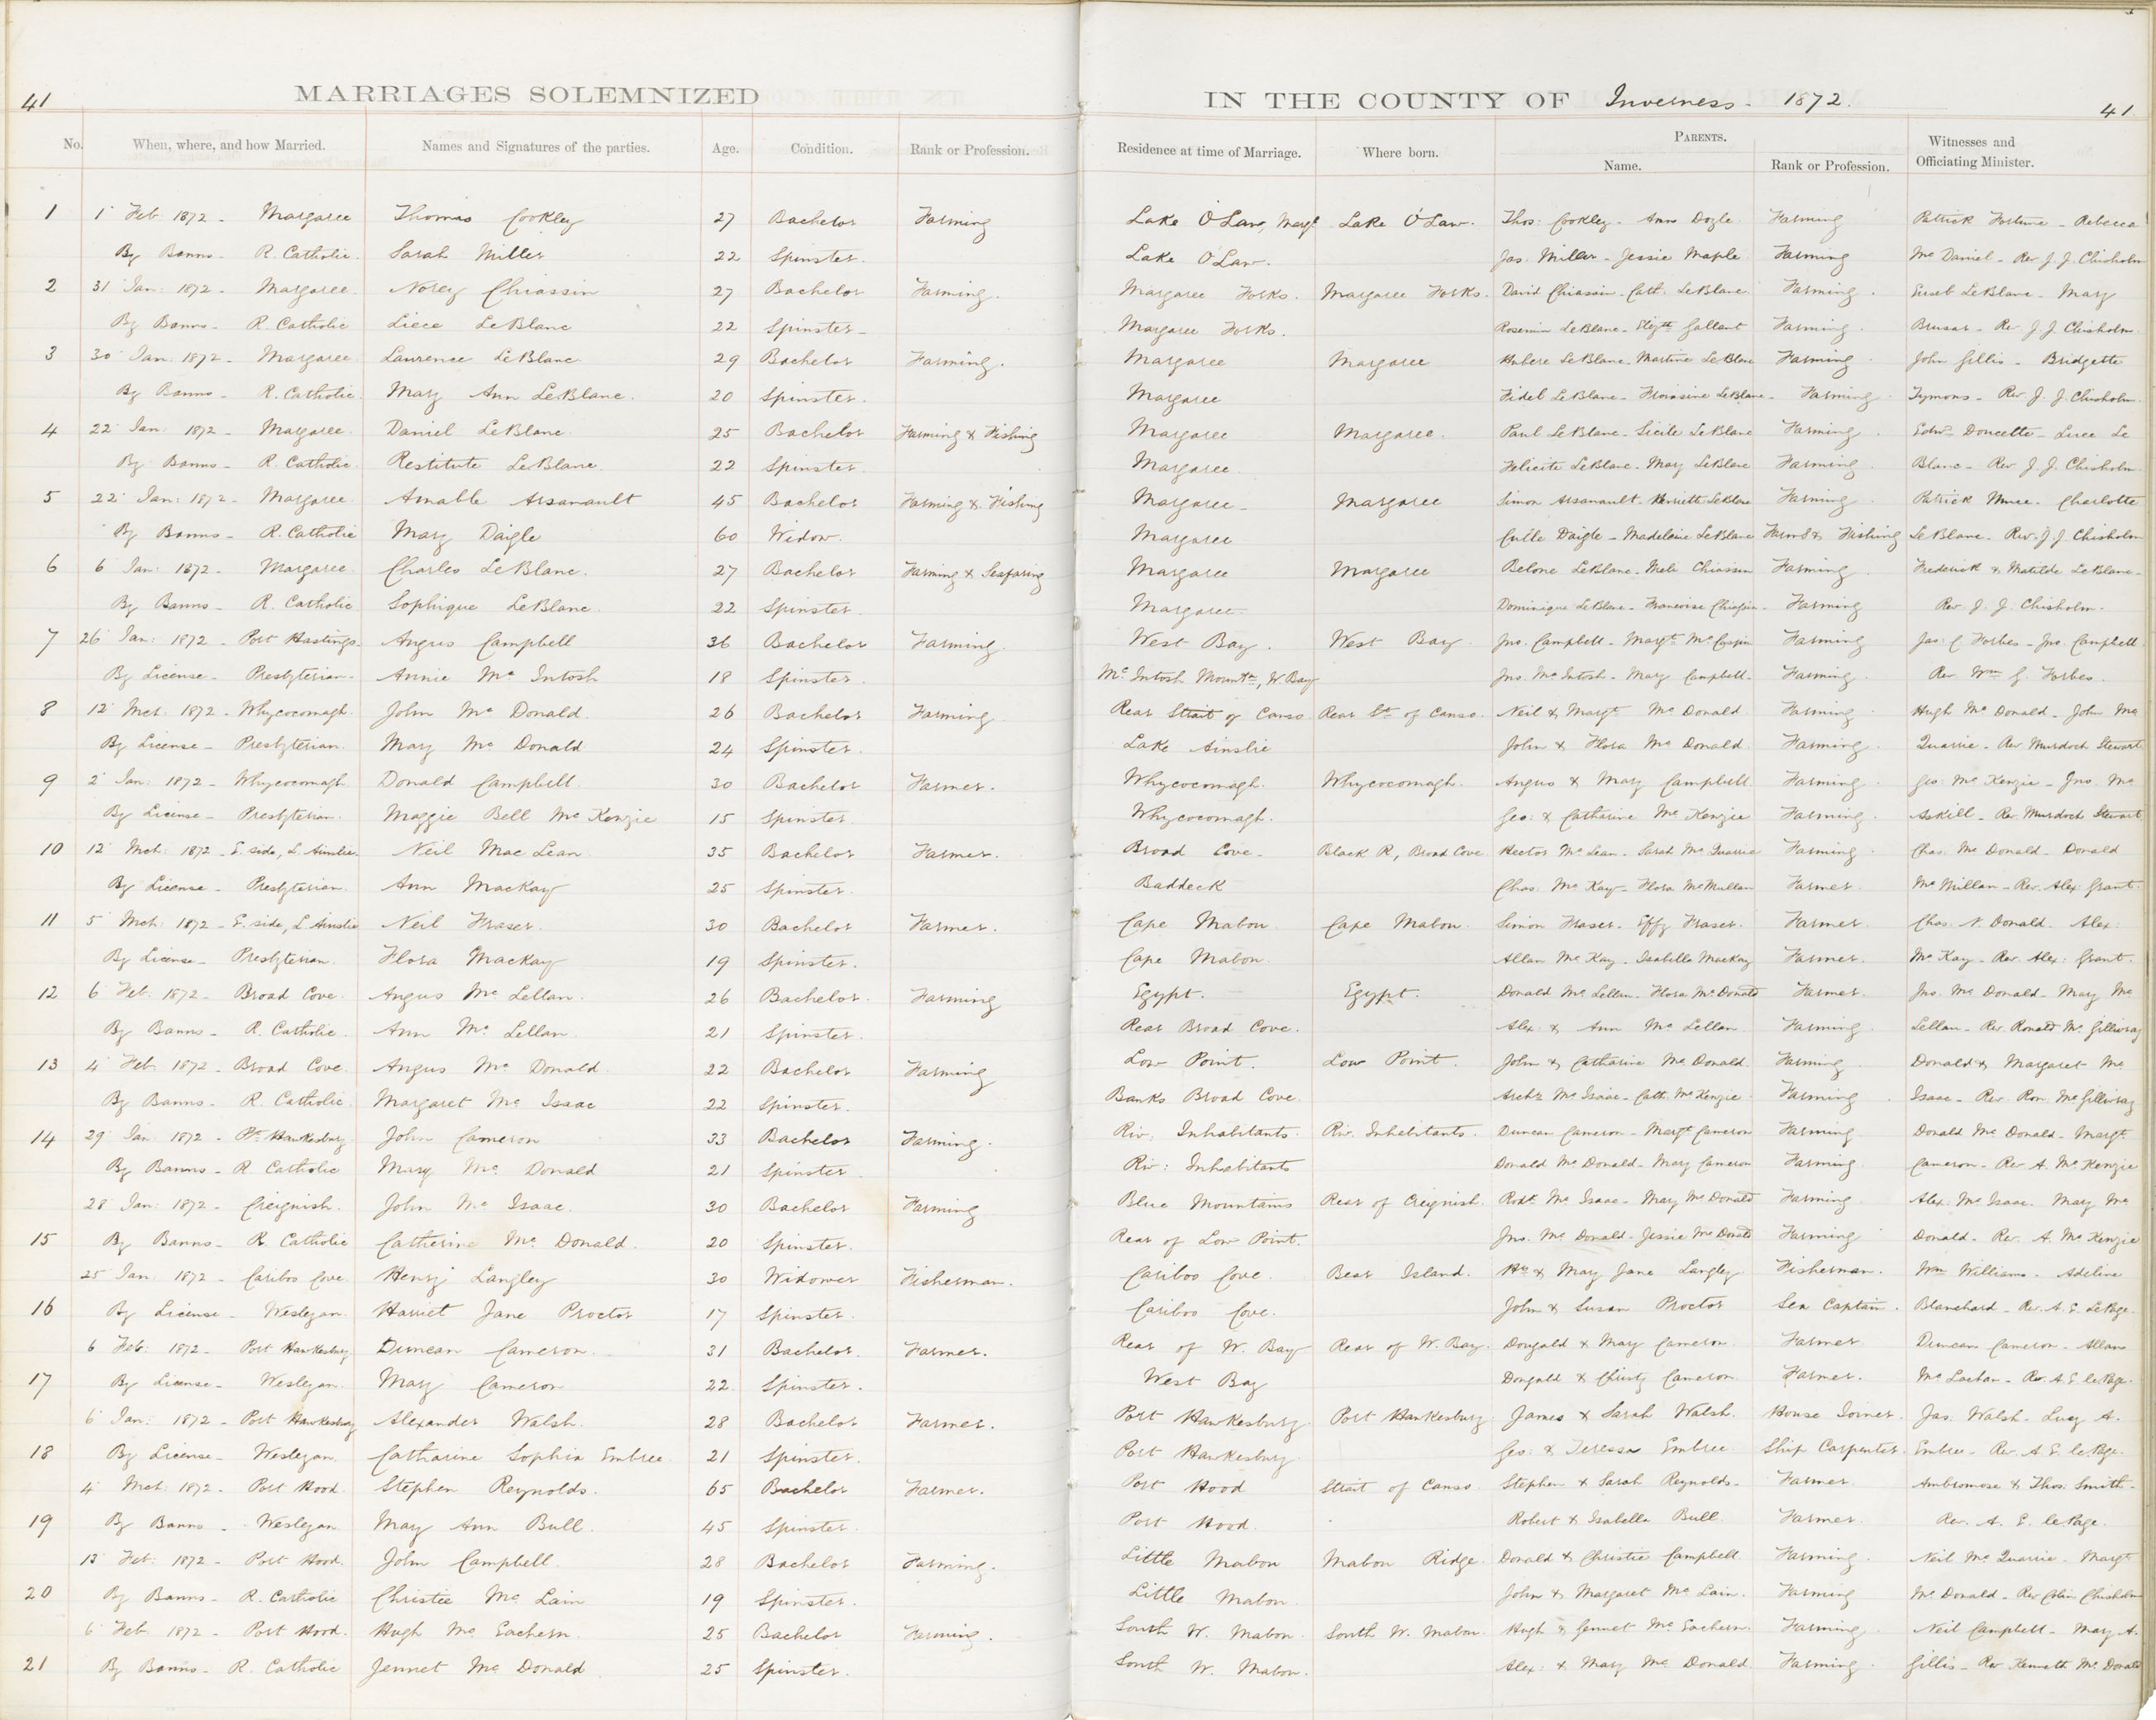 41
MARRIAGES SOLEMNIZED
IN THE COUNTY OF Inverness - 1872.
41
No. When, where, and how Married. Names and Signatures of the parties. Age. Condition. Rank or Profession. Residence at time of Marriage. Where born. PARENTS. Name. Rank or Profession. Witnesses and Officiating Minister.
1 1 Feb 1872 - Margaree Thomas Cookley 27 Bachelor Farming Lake O'Law, Marg. Lake O'Law. Thos: Cookley - Ann Doyle Farming Patrick Fortune - Rebecca
By Banns - R. Catholic. Sarah Miller 22 Spinster. Lake O'Law. Jas. Miller - Jessie Maple Farming Mc Daniel - Rev J. J. Chisholm
2 31 Jan: 1872 - Margaree. Chiassin 27 Bachelor Farming. Margaree Forks. Margaree Forks. David Chiassin - Cath. LeBlanc Farming. LeBlanc - Mary
By Banns - R. Catholic Liece LeBlanc 22 Spinster - Margaree Forks. LeBlanc - Gallant Farming Brusar - Rev J. J. Chisholm
3 30 Jan: 1872 - Margaree. Laurence LeBlanc 29 Bachelor Farming. Margaree Margaree Hubere LeBlanc - Martine LeBlanc Farming John Gillis - Bridgette
By Banns - R. Catholic. Mary Ann LeBlanc. 20 Spinster. Margaree Fidel LeBlanc - LeBlanc - Farming. Tymons - Rev J. J. Chisholm.
4 22 Jan: 1872 - Margaree. Daniel LeBlanc 25 Bachelor Farming & Fishing Margaree Margaree. Paul LeBlanc - Sicile LeBlanc Farming. Edw - Doucette - Luce Le
By Banns - R. Catholic. Restitute LeBlanc. 22 Spinster. Margaree. Felicite LeBlanc - Mary LeBlanc Farming Blanc - Rev J. J. Chisholm
5 22 Jan: 1872 - Margaree. Amable Arsanault 45 Bachelor Farming & Fishing Margaree - Margaree Simon Arsanault - Henriette LeBlanc Farming Patrick - Charlotte
By Banns - R. Catholic Mary Daigle 60 Widow. Margaree Daigle - Madelaine LeBlanc Farmg & Fishing LeBlanc - Rev. J. J. Chisholm
6 6 Jan: 1872 - Margaree. Charles LeBlanc. 27 Bachelor Farming & Seafaring Margaree Margaree Belone LeBlanc - Chiassin Farming Frederick & Matilde LeBlanc -
By Banns - R. Catholic Sophique LeBlanc. 22 Spinster. Margaree - Dominique LeBlanc - Francoise - Farming Rev J. J. Chisholm -
7 26 Jan: 1872 - Port Hastings - Angus Campbell 36 Bachelor Farming. West Bay. West Bay. Jno. Campbell - Margt Farming Jas: C Forbes - Jno. Campbell
By License - Presbyterian - Annie Mc Intosh 18 Spinster. Mc Intosh Mountn, W. Bay Jno. Mc Intosh - Mary Campbell - Farming. Rev. Wm G. Forbes.
8 12 Mch: 1872 - Whycocomagh. John Mc Donald. 26 Bachelor Farming Rear Strait of Canso. Rear St of Canso. Neil & Margt Mc Donald Farming. Hugh Mc Donald - John Mc
By License - Presbyterian. Mary Mc Donald 24 Spinster. Lake Ainslie John & Flora Mc Donald Farming. Quarrie - Rev Murdoch Stewart
9 2 Jan: 1872 - Whycocomagh Donald Campbell 30 Bachelor Farmer. Whycocomagh. Whycocomagh. Angus & Mary Campbell Farming. Geo: Mc Kenzie - Jno. Mc
By License - Presbyterian. Maggie Bell Mc Kenzie 15 Spinster. Whycocomagh. Geo: & Catharine Mc Kenzie Farming. Askill - Rev. Murdoch Stewart
10 12 Mch: 1872 - E. side, L. Ainslie - Neil Mac Lean 35 Bachelor Farmer. Broad Cove - Black R, Broad Cove Hector Mc Lean - Sarah Mc Quarrie Farming Chas. Mc Donald - Donald
By License - Presbyterian. Ann MacKay 25 Spinster. Baddeck Chas. Mc Kay - Flora McMullan Farmer. McMillan - Rev. Alex: Grant.
11 5 Mch: 1872 - E. side, L Ainslie Neil Fraser. 30 Bachelor Farmer. Cape Mabou. Cape Mabou. Simon Fraser - Effy Fraser. Farmer. Chas. N. Donald. Alex:
By License - Presbyterian. Flora MacKay 19 Spinster. Cape Mabou. Allan Mc Kay - Isabella MacKay Farmer. Mc Kay - Rev. Alex: Grant.
12 6 Feb: 1872 - Broad Cove. Angus Mc Lellan. 26 Bachelor. Farming Egypt. Egypt. Donald Mc Lellan - Flora Mc Donald Farmer. Jno. Mc Donald - Mary Mc
By Banns - R. Catholic. Ann Mc Lellan 21 Spinster. Rear Broad Cove. Alex: & Ann Mc Lellan Farming. Lellan - Rev. Ronald Mc Gillivray
13 4 Feb 1872 - Broad Cove. Angus Mc Donald. 22 Bachelor Farming Low Point. Low Point. John & Catharine Mc Donald. Farming Donald & Margaret Mc
By Banns - R. Catholic. Margaret Mc Isaac 22 Spinster. Banks Broad Cove. Archd Mc Isaac - Cath. McKenzie Farming. Isaac - Rev. Ron. McGillivray
14 29 Jan: 1872 - Pt Hawkesbury. John Cameron 33 Bachelor Farming. Riv: Inhabitants. Riv. Inhabitants. Duncan Cameron - Margt Cameron Farming Donald Mc Donald - Margt
By Banns - R Catholic Mary Mc Donald 21 Spinster Riv: Inhabitants Donald Mc Donald - Mary Cameron Farming. Cameron - Rev A. Mc Kenzie
28 Jan: 1872 - Creignish. John Mc Isaac. 30 Bachelor Farming Blue Mountains Rear of Creignish. Rodk. Mc Isaac - Mary Mc Donald Farming. Alex: Mc Isaac. Mary Mc
15 By Banns - R. Catholic Catherine Mc Donald. 20 Spinster. Rear of Low Point. Jno. Mc Donald - Jessie Mc Donald Farming Donald - Rev. A. Mc Kenzie
25 Jan: 1872 - Cariboo Cove. Henry Langley 30 Widower Fisherman. Cariboo Cove. Bear Island. Hy & Mary Jane Langley Fisherman. Wm Williams - Adeline
16 By License - Wesleyan. Harriet Jane Proctor 17 Spinster. Cariboo Cove. John & Susan Proctor Sea Captain. Blanchard - Rev. A. E. LePage.
6 Feb: 1872 - Port Hawkesbury Duncan Cameron. 31 Bachelor. Farmer. Rear of W. Bay Rear of W. Bay. Dougald & Mary Cameron. Farmer Duncan Cameron - Allan
17 By License - Wesleyan. Mary Cameron 22 Spinster. West Bay Dougald & Christy Cameron. Farmer. Mc Lachan - Rev. A. E. lePage.
6 Jan: 1872 - Port Hawkesbury Alexander Walsh. 28 Bachelor Farmer. Port Hawkesbury. Port Hawkesbury James & Sarah Walsh. House Joiner. Jas. Walsh. Lucy A.
18 By License - Wesleyan. Catharine Sophia Embree. 21 Spinster. Port Hawkesbury Geo: & Teressa Embree Ship Carpenter. Embree - Rev. A E. lePage.
4 Mch: 1872 - Port Hood. Stephen Reynolds. 65 Bachelor Farmer. Port Hood Strait of Canso. Stephen & Sarah Reynolds - Farmer. Ambromose & Thos. Smith -
19 By Banns - Wesleyan. May Ann Bull. 45 Spinster. Port Hood. Robert & Isabella Bull. Farmer. Rev. A. E. lePage.
13 Feb: 1872 - Port Hood. John Campbell. 28 Bachelor Farming. Little Mabou Mabou Ridge. Donald & Christie Campbell. Farming. Neil Mc Quarrie. Margt
20 By Banns - R. Catholic Christie Mc Lain 19 Spinster. Little Mabou. John & Margaret Mc Lain. Farming Mc Donald - Rev Colin Chisholm
6 Feb 1872 - Port Hood. Hugh Mc Eachern. 25 Bachelor Farming. South W. Mabou. South W. Mabou. Hugh & Jennet Mc Eachern. Farming. Neil Campbell - Mary A.
21 By Banns - R. Catholic Jennet Mc Donald 25 Spinster. South W. Mabou. Alex: & Mary Mc Donald Farming Gillis - Rev Kenneth Mc Donald